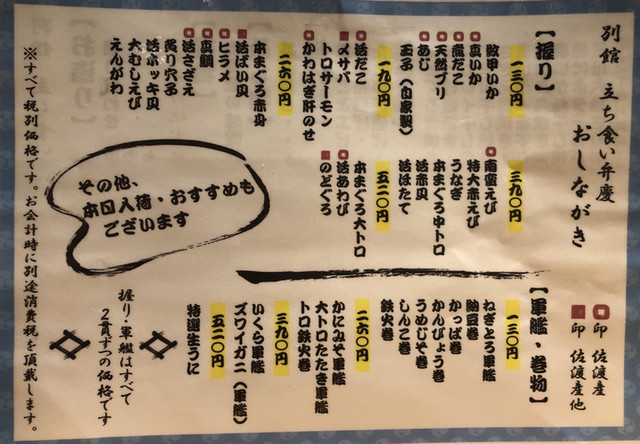 別館 立ち食い弁慶
おしながき
印 佐渡産
印 佐渡産他
【握り】
一三〇円
紋甲いか
真いか
煮だこ
天然ブリ
あじ
玉子(自家製)
一九〇円
活だこ
〆サバ
トロサーモン
かわはぎ肝のせ
二六〇円
本まぐろ赤身
活ばい貝
ヒラメ
真鯛
活さざえ
炙り穴子
活ホッキ貝
大むしえび
えんがわ
三九〇円
南蛮えび
特大赤えび
うなぎ
本まぐろ中トロ
活赤貝
活ほたて
五二〇円
本まぐろ大トロ
活あわび
のどぐろ
【軍艦・巻物】
一三〇円
ねぎとろ軍艦
納豆巻
かっぱ巻
かんぴょう巻
うめじそ巻
しんこ巻
鉄火巻
二六〇円
かにみそ軍艦
大トロたたき軍艦
トロ鉄火巻
三九〇円
いくら軍艦
ズワイガニ(軍艦)
五二〇円
特選生うに
その他、
本日入荷・おすすめも
ございます
握り・軍艦はすべて
2貫ずつの価格です
※すべて税別価格です。お会計時に別途消費税を頂戴します。